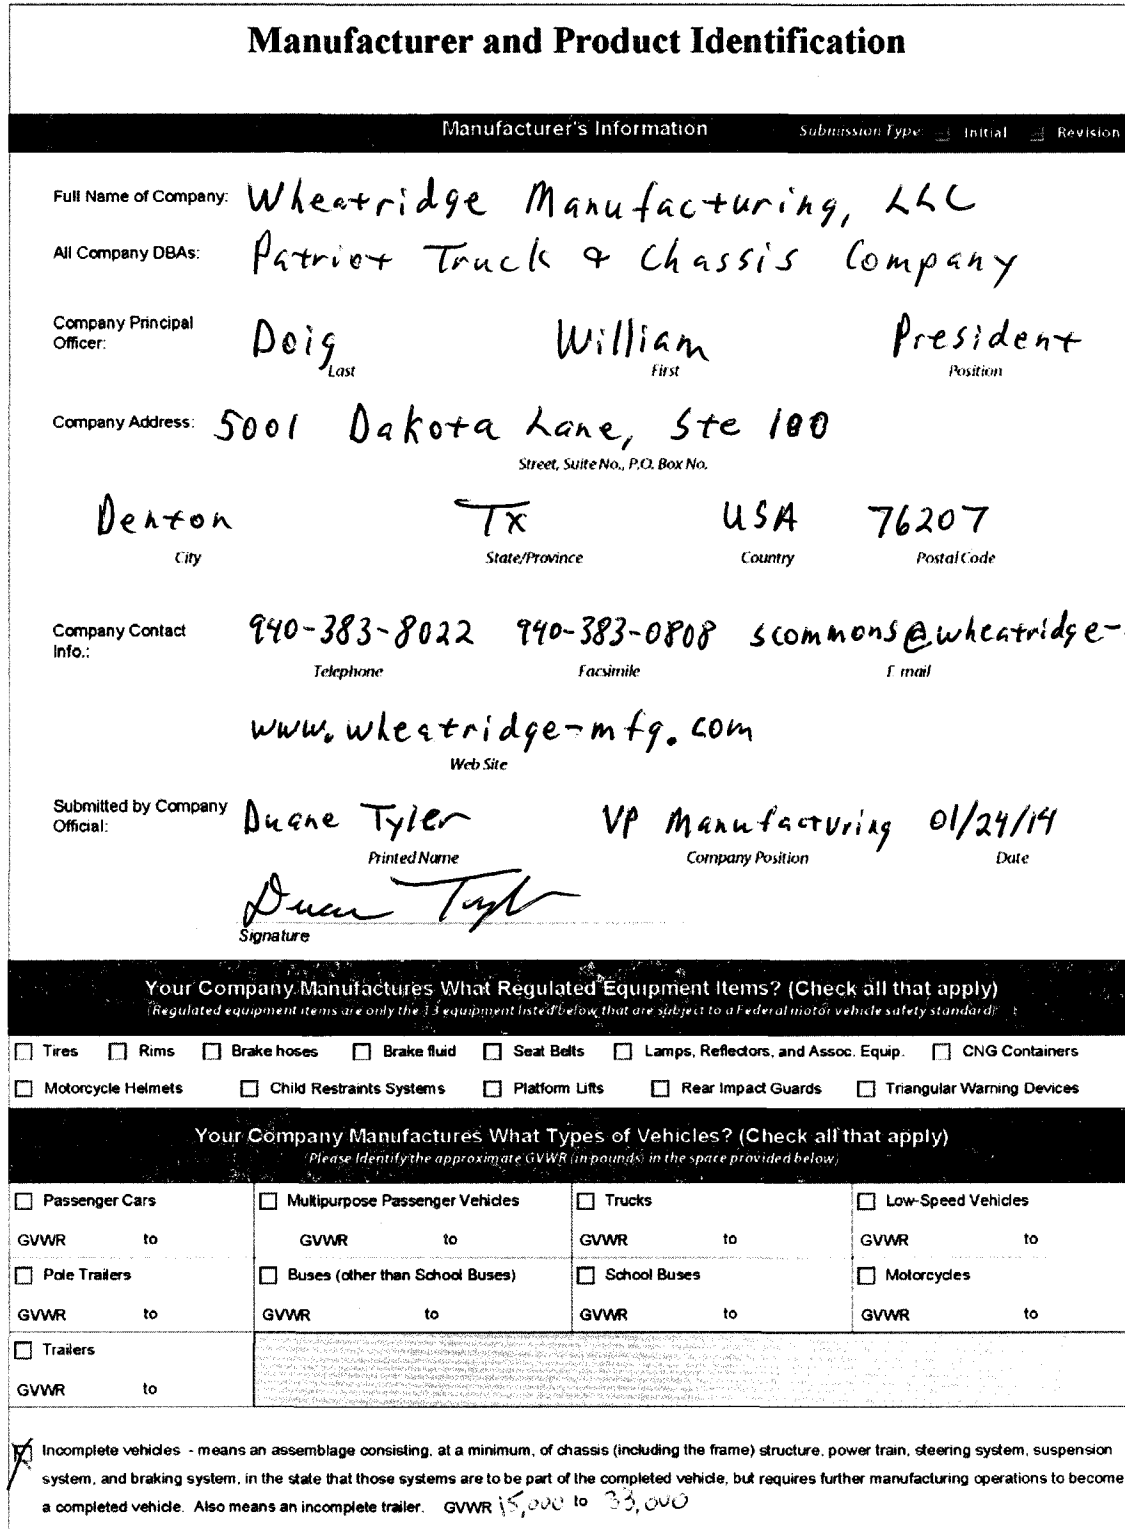 Manufacturer and Product Identification
Manufacturer's Information Submission Type: Initial Revision
Full Name of Company: Wheatridge Manufacturing, LLC
All Company DBAs: Patriot Truck & Chassis Company
Company Principal
Officer:
Doig William President
Last First Position
Company Address: 5001 Dakota Lane, Ste 100
Street, Suite No., P.O. Box No.
Denton TX USA 76207
City State/Province Country Postal Code
Company Contact
Info.:
940-383-8022 940-383-0808 scommons@wheatridge-
Telephone Facsimile E-mail
www.wheatridge-mfg.com
Web Site
Submitted by Company
Official:
Duane Tyler VP Manufacturing 01/24/14
Printed Name Company Position Date
Duane Tyler
Signature
Your Company Manufactures What Regulated Equipment Items? (Check all that apply)
(Regulated equipment items are only the 13 equipment listed below that are subject to a Federal motor vehicle safety standard)
Tires Rims Brake hoses Brake fluid Seat Belts Lamps, Reflectors, and Assoc. Equip. CNG Containers
Motorcycle Helmets Child Restraints Systems Platform Lifts Rear Impact Guards Triangular Warning Devices
Your Company Manufactures What Types of Vehicles? (Check all that apply)
(Please Identify the approximate GVWR (in pounds) in the space provided below)
Passenger Cars Multipurpose Passenger Vehicles Trucks Low-Speed Vehicles
GVWR to GVWR to GVWR to GVWR to
Pole Trailers Buses (other than School Buses) School Buses Motorcycles
GVWR to GVWR to GVWR to GVWR to
Trailers
GVWR to
Incomplete vehicles - means an assemblage consisting, at a minimum, of chassis (including the frame) structure, power train, steering system, suspension
system, and braking system, in the state that those systems are to be part of the completed vehicle, but requires further manufacturing operations to become
a completed vehicle. Also means an incomplete trailer. GVWR 15,000 to 33,000